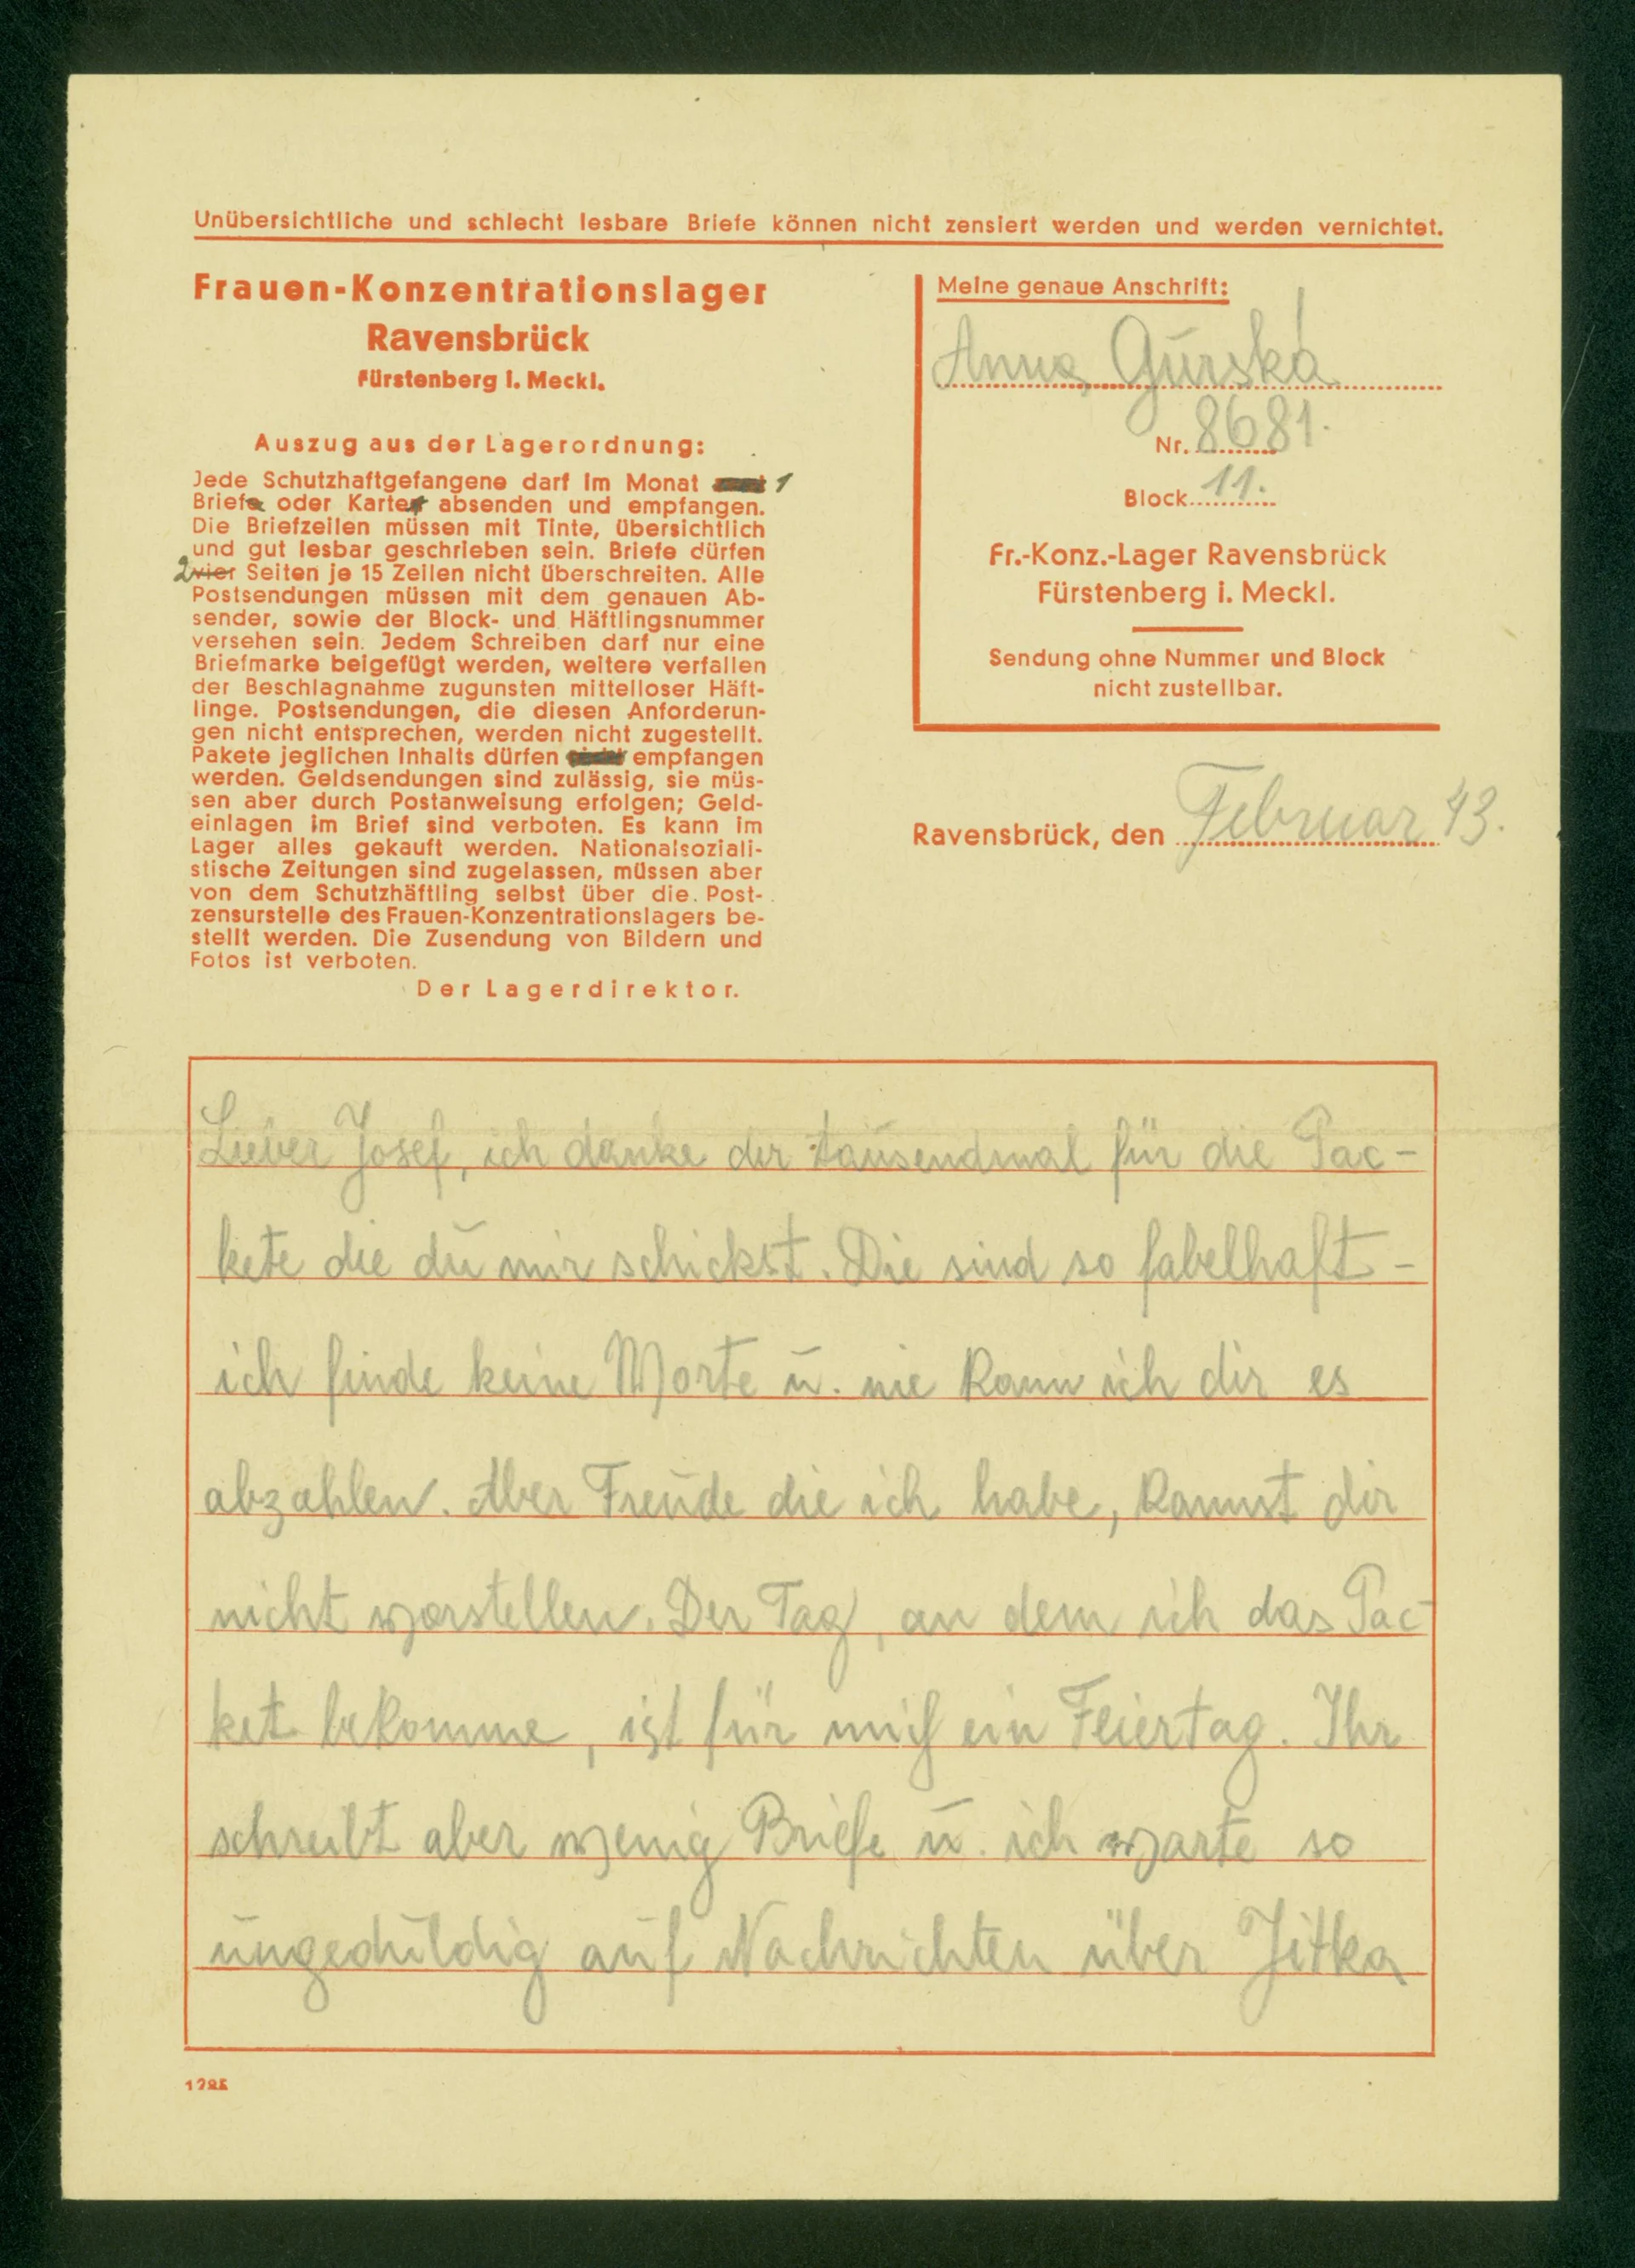 Unübersichtliche und schlecht lesbare Briefe können nicht zensiert werden und werden vernichtet.
Frauen-Konzentrationslager
Ravensbrück
Fürstenberg i. Meckl.
Auszug aus der Lagerordnung:
Jede Schutzhaftgefangene darf im Monat 1
Briefe oder Karten absenden und empfangen.
Die Briefzeilen müssen mit Tinte, übersichtlich
und gut lesbar geschrieben sein. Briefe dürfen
2 vier Seiten je 15 Zeilen nicht überschreiten. Alle
Postsendungen müssen mit dem genauen Ab-
sender, sowie der Block- und Häftlingsnummer
versehen sein. Jedem Schreiben darf nur eine
Briefmarke beigefügt werden, weitere verfallen
der Beschlagnahme zugunsten mittelloser Häft-
linge. Postsendungen, die diesen Anforderun-
gen nicht entsprechen, werden nicht zugestellt.
Pakete jeglichen Inhalts dürfen empfangen
werden. Geldsendungen sind zulässig, sie müs-
sen aber durch Postanweisung erfolgen; Geld-
einlagen im Brief sind verboten. Es kann im
Lager alles gekauft werden. Nationalsoziali-
stische Zeitungen sind zugelassen, müssen aber
von dem Schutzhäftling selbst über die Post-
zensurstelle des Frauen-Konzentrationslagers be-
stellt werden. Die Zusendung von Bildern und
Fotos ist verboten.
Der Lagerdirektor.
Meine genaue Anschrift:
Anna Gurská
Nr. 8681.
Block 11.
Fr.-Konz.-Lager Ravensbrück
Fürstenberg i. Meckl.
Sendung ohne Nummer und Block
nicht zustellbar.
Ravensbrück, den Februar 43.
Lieber Josef, ich danke dir tausendmal für die Pac-
kete die du mir schickst. Die sind so fabelhaft -
ich finde keine Worte u. nie kann ich dir es
abzahlen. Aber Freude die ich habe, kannst dir
nicht vorstellen. Der Tag, an dem ich das Pac-
ket bekomme, ist für mich ein Feiertag. Ihr
schreibt aber wenig Briefe u. ich warte so
ungeduldig auf Nachrichten über Jitka